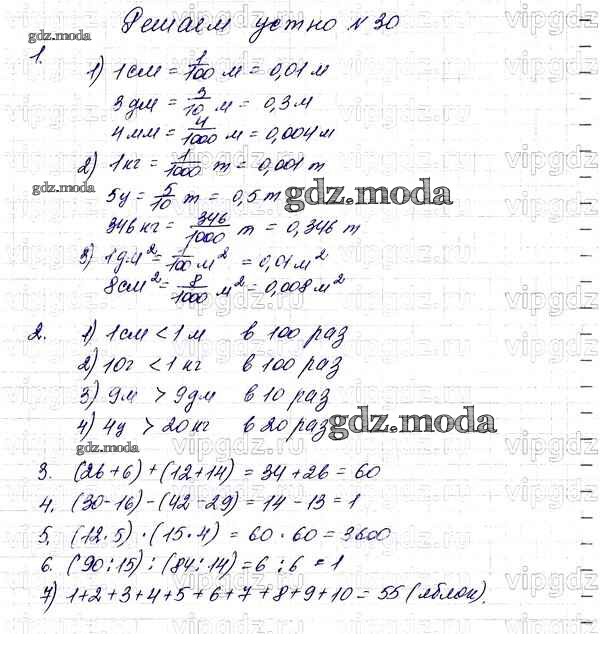 Решаем устно № 30
gdz.moda
1.
1) 1 см = 1/100 м = 0,01 м
3 дм = 3/10 м = 0,3 м
4 мм = 4/1000 м = 0,004 м
2) 1 кг = 1/1000 т = 0,001 т
gdz.moda
5 ц = 5/10 т = 0,5 т gdz.moda
346 кг = 346/1000 т = 0,346 т
3) 1 дм² = 1/100 м² = 0,01 м²
8 см² = 8/1000 м² = 0,008 м²
2. 1) 1 см < 1 м в 100 раз
2) 10 г < 1 кг в 100 раз
3) 9 м > 9 дм в 10 раз
4) 4 ц > 20 кг в 20 раз gdz.moda
gdz.moda
3. (26+6)+(12+14) = 34+26 = 60
4. (30-16)-(42-29) = 14-13 = 1
5. (12·5)·(15·4) = 60·60 = 3600
6. (90:15):(84:14) = 6:6 = 1
7) 1+2+3+4+5+6+7+8+9+10 = 55 (яблок).
vipgdz.ru